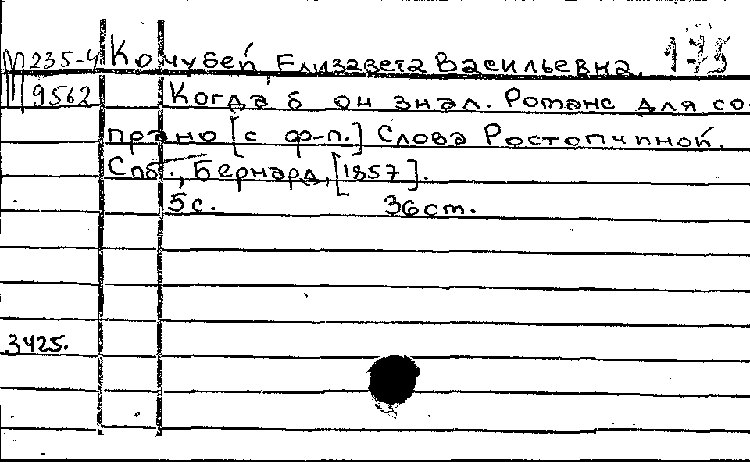 М 235-4 Кочубей Елизавета Васильевна. 175
9562 Когда б он знал. Романс для со-
прано [с ф-п.] Слова Ростопчиной.
Спб., Бернард, [1857].
5 с. 36 cm.
3425.